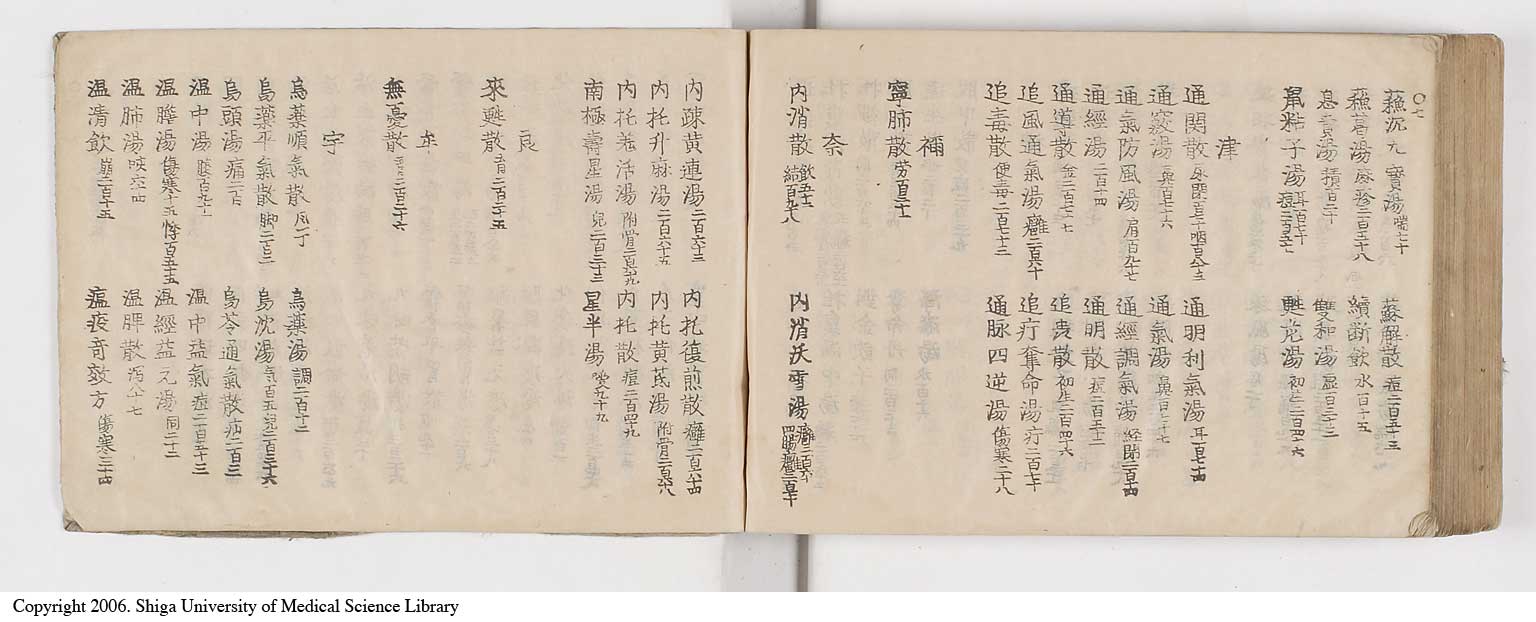 蘓沉九寶湯 喘六十
蘓解散 痘二百五十三
蘓葛湯 麻疹二百五十八
續斷飲 水百十五
息賁湯 積百二十
雙和湯
鼠粘子湯
甦危湯 初生二百四六
津
通関散
通明利氣湯 耳百七十四
通竅湯 鼻百七十六
通氣湯 鼻百七十七
通氣防風湯 肩百九十七
通經調氣湯 経閉二百四
通經湯 二百十四
通明散
通導散
追毒散 初生二百四十六
追風通氣湯 癰二百六十
追疔奪命湯 疔二百七十
追毒散 便毒二百七十三
通脉四逆湯 傷寒二十八
禰
寧肺散 労百三十一
奈
内消散
内消沃雪湯
内疎黄連湯 二百六十三
内托復煎散 癰二百六十四
内托升麻湯 二百六十五
内托黄芪湯 附骨二百六十八
内托羌活湯 附骨二百六十九
内托散 痘二百四十九
南極壽星湯 兒二百三十三
星半湯
良
來甦散 二百十五
牟
無憂散 二百二十六
宇
烏藥順氣散 風丁
烏藥湯 調二百十二
烏藥平氣散 脚二百二
烏沈湯 氣百五 兒二百三十六
烏頭湯 痛二百
烏苓通氣散 疝二百三
温中湯
温中益氣 痘二百五十三
温膽湯 傷寒十五 悸百五十五
温經益元湯 同二十二
温肺湯 咳六十四
温脾散 瀉八十七
温清飲 崩二百十五
瘟疫奇效方 傷寒三十四
Copyright 2006. Shiga University of Medical Science Library